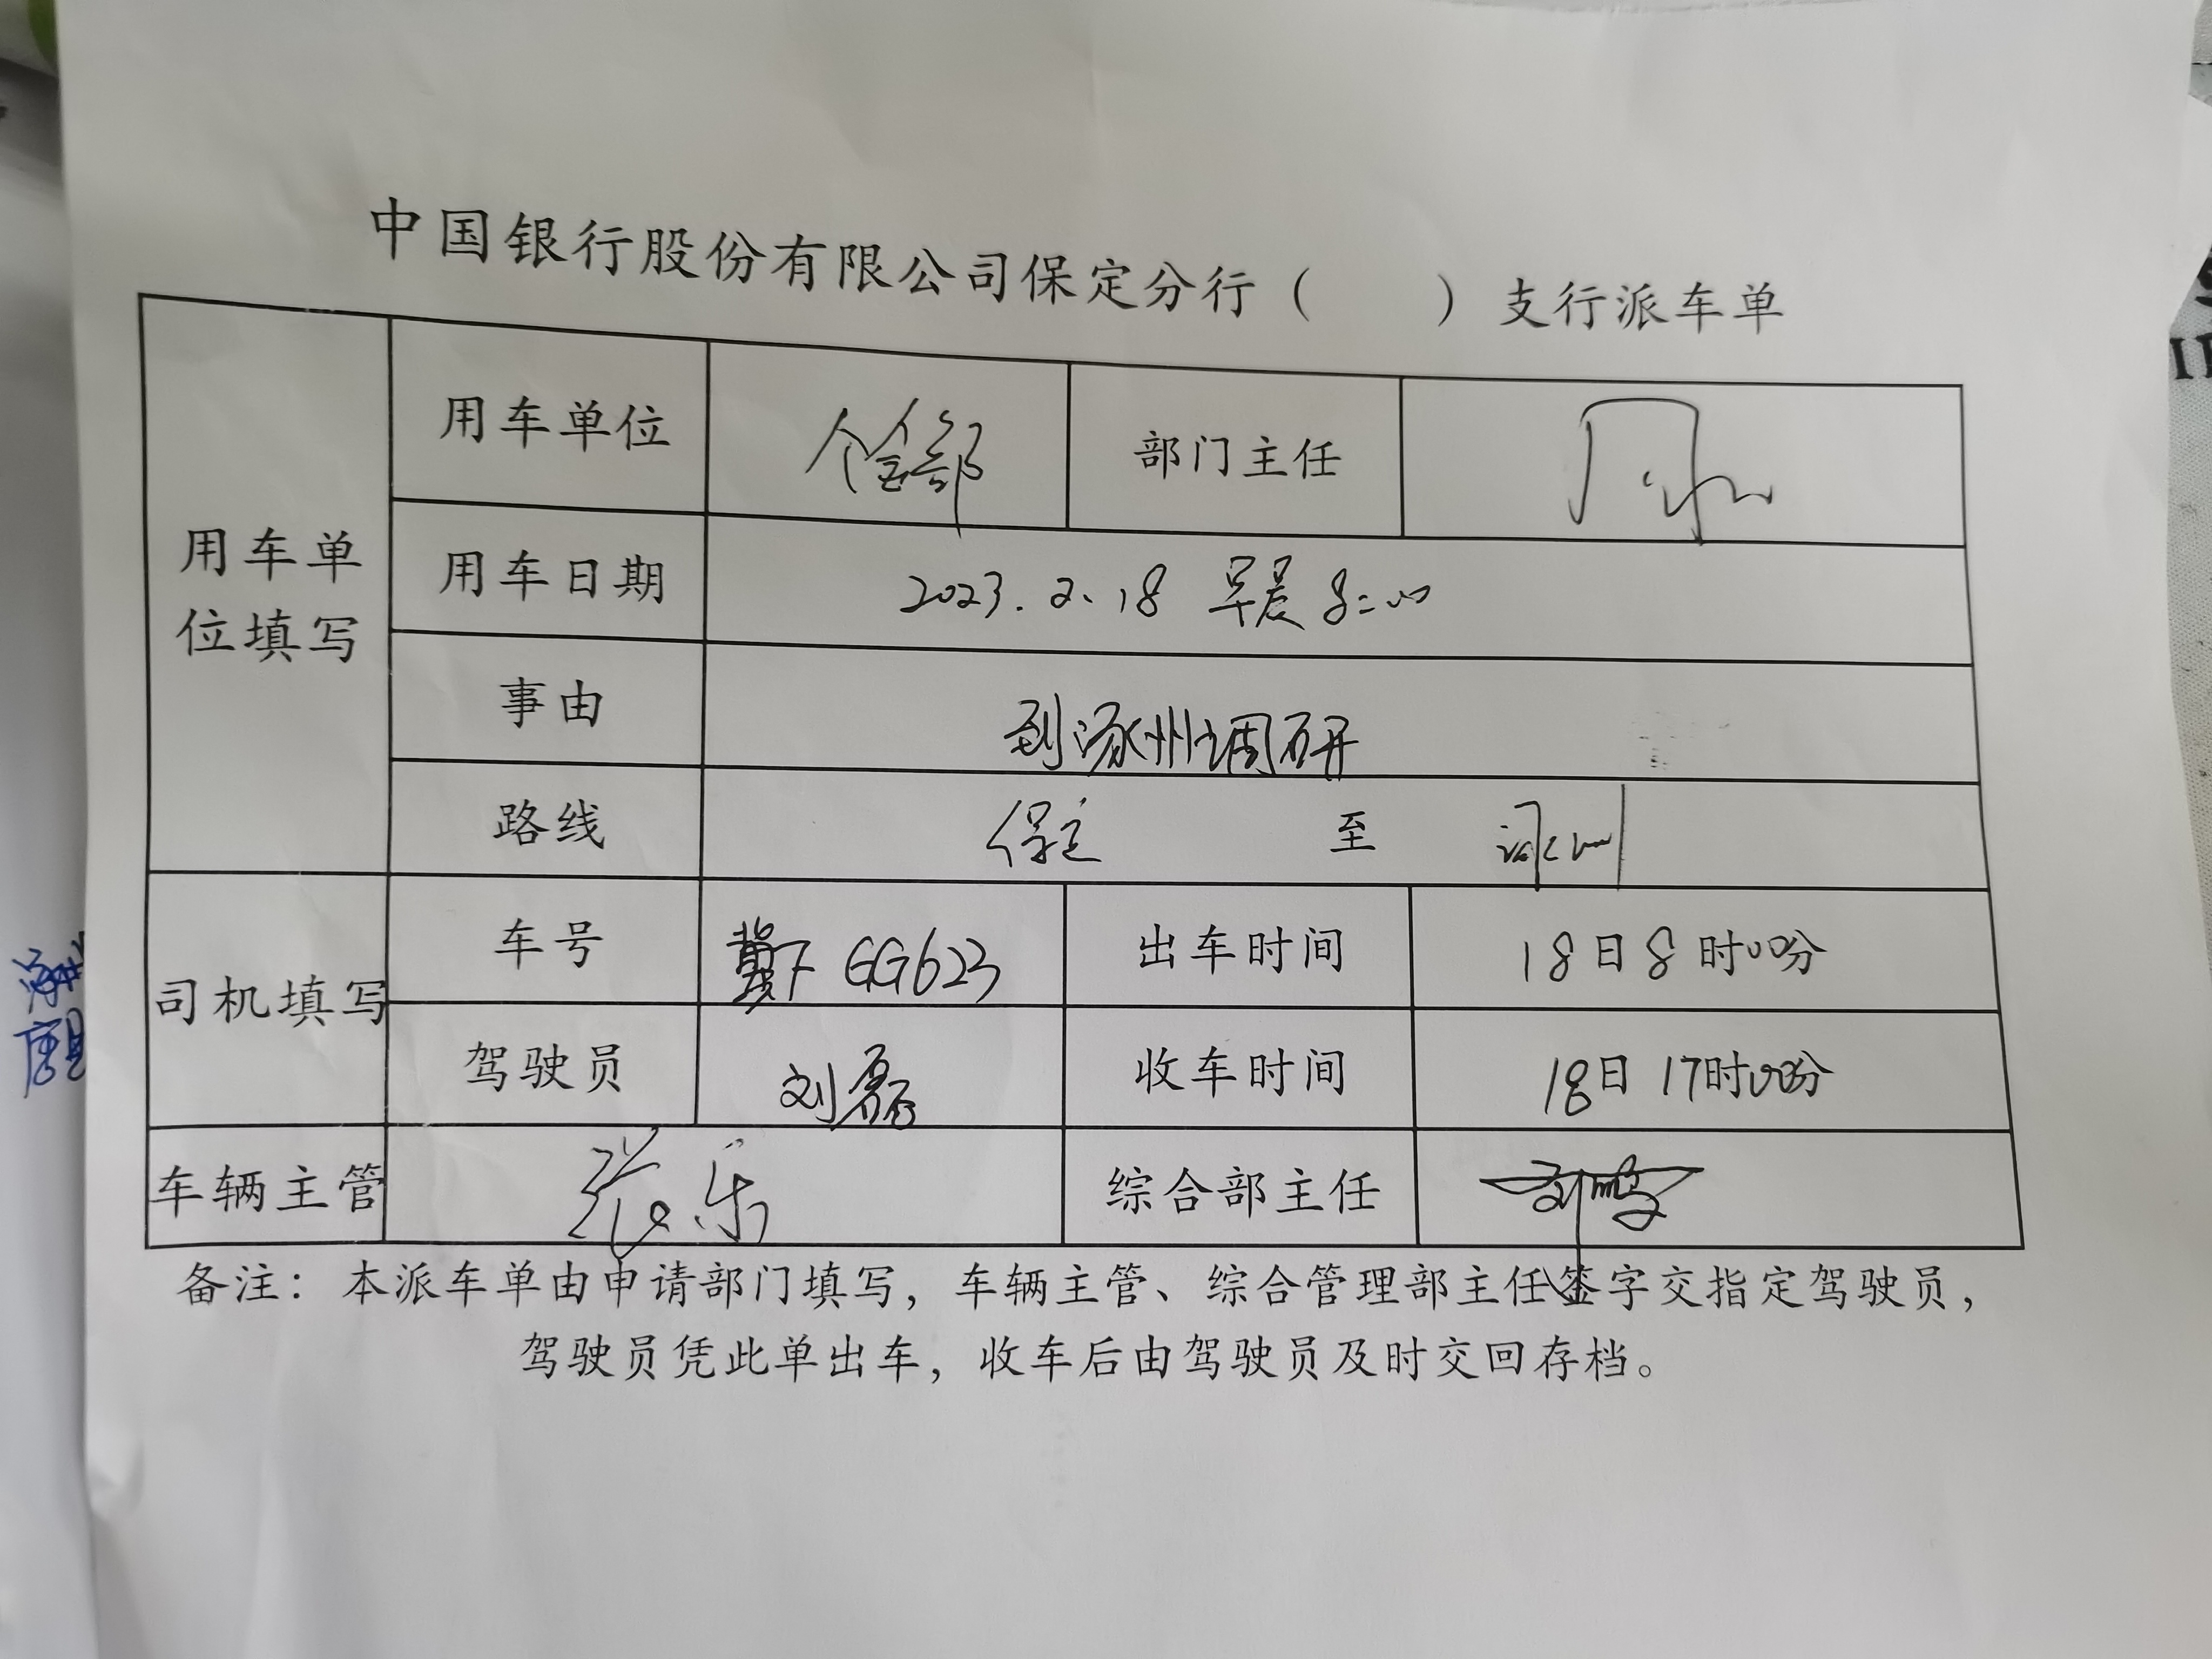 中国银行股份有限公司保定分行（　　）支行派车单
用车单位填写
用车单位 个金部 部门主任
用车日期 2023.2.18 早晨8:00
事由 到涿州调研
路线 保定 至 涿州
司机填写
车号 冀F GG623 出车时间 18日8时00分
驾驶员 刘磊 收车时间 18日17时00分
车辆主管 张乐 综合部主任
备注：本派车单由申请部门填写，车辆主管、综合管理部主任签字交指定驾驶员，
驾驶员凭此单出车，收车后由驾驶员及时交回存档。